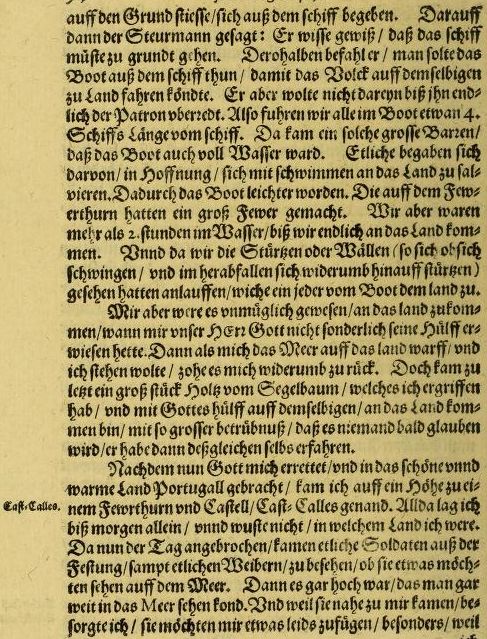 auff den Grund stiesse/sich auß dem schiff begeben. Darauff
dann der Steurmann gesagt: Er wisse gewiß/ daß das schiff
müste zu grundt gehen. Derohalben befahl er/ man solte das
Boot auß dem schiff thun/ damit das Volck auff demselbigen
zu Land fahren köndte. Er aber wolte nicht dareyn biß jhn end-
lich der Patron vberredt. Also fuhren wir alle im Boot etwan 4.
Schiffs Länge vom schiff. Da kam ein solche grosse Barren/
daß das Boot auch voll Wasser ward. Etliche begaben sich
darvon/ in Hoffnung/ sich mit schwimmen an das Land zu sal-
vieren. Dadurch das Boot leichter worden. Die auff dem Few-
erthurn hatten ein groß Fewer gemacht. Wir aber waren
mehr als 2. stunden im Wasser/ biß wir endlich an das Land kom-
men. Vnnd da wir die Stürtzen oder Wällen (so sich obsich
schwingen/ vnd im herabfallen sich widerumb hinauff stürtzen)
gesehen hatten anlauffen/ wiche ein jeder vom Boot dem land zu.
Mir aber were es vnmüglich gewesen/ an das land zukom-
men/ wann mir vnser HErr Gott nicht sonderlich seine Hülff er-
wiesen hette. Dann als mich das Meer auff das land warff/ vnd
ich stehen wolte/ zohe es mich widerumb zu rück. Doch kam zu
letzt ein groß stück Holtz vom Segelbaum/ welches ich ergriffen
hab/ vnd mit Gottes hülff auff demselbigen/ an das Land kom-
men bin/ mit so grosser betrübnuß/ daß es niemand bald glauben
wird/ er habe dann deßgleichen selbs erfahren.
Nachdem nun Gott mich errettet/ vnd in das schöne vnnd
warme Land Portugall gebracht/ kam ich auff ein Höhe zu ei-
Cast-Calles.
nem Fewrthurn vnd Castell/ Cast-Calles genand. Allda lag ich
biß morgen allein/ vnnd wuste nicht/ in welchem Land ich were.
Da nun der Tag angebrochen/ kamen etliche Soldaten auß der
Festung/ sampt etlichen Weibern/ zu besehen/ ob sie etwas möch-
ten sehen auff dem Meer. Dann es gar hoch war/ das man gar
weit in das Meer sehen kond. Vnd weil sie nahe zu mir kamen/ be-
sorgte ich/ sie möchten mir etwas leids zufügen/ besonders/ weil